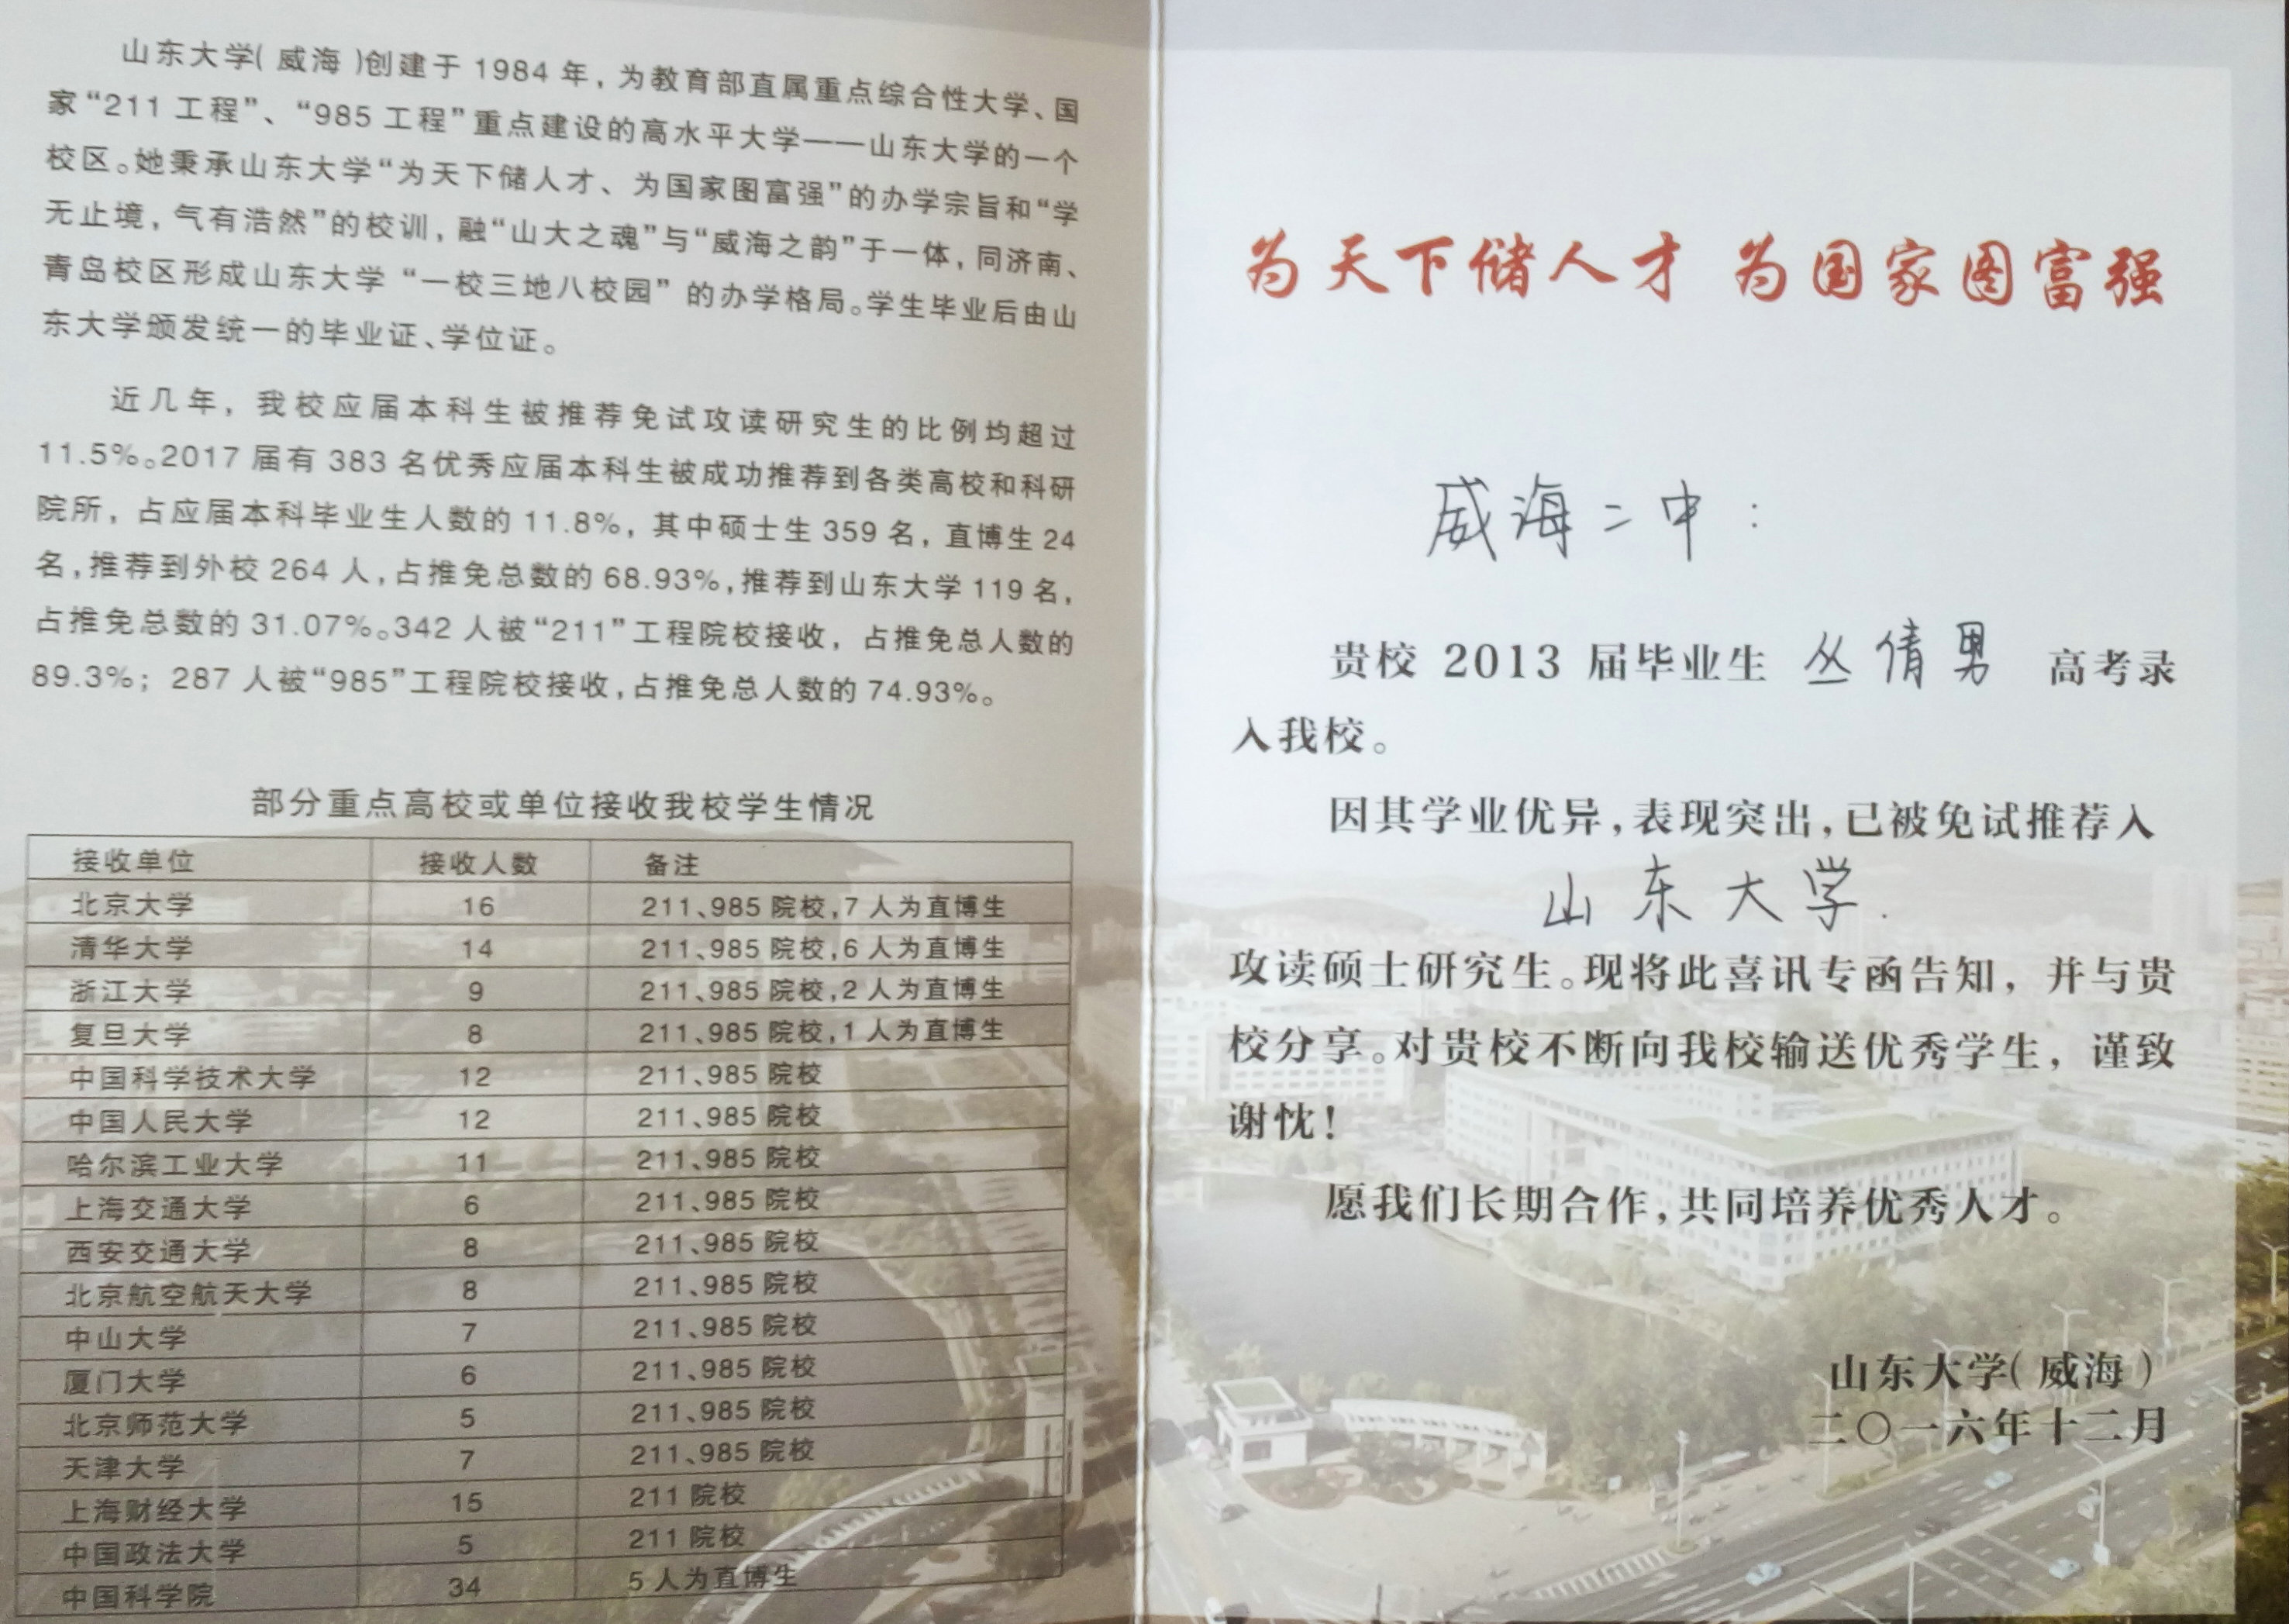 山东大学(威海)创建于1984年，为教育部直属重点综合性大学、国
家“211工程”、“985工程”重点建设的高水平大学——山东大学的一个
校区。她秉承山东大学“为天下储人才、为国家图富强”的办学宗旨和“学
无止境，气有浩然”的校训，融“山大之魂”与“威海之韵”于一体，同济南、
青岛校区形成山东大学“一校三地八校园”的办学格局。学生毕业后由山
东大学颁发统一的毕业证、学位证。
近几年，我校应届本科生被推荐免试攻读研究生的比例均超过
11.5%。2017届有383名优秀应届本科生被成功推荐到各类高校和科研
院所，占应届本科毕业生人数的11.8%，其中硕士生359名，直博生24
名，推荐到外校264人，占推免总数的68.93%，推荐到山东大学119名，
占推免总数的31.07%。342人被“211”工程院校接收，占推免总人数的
89.3%；287人被“985”工程院校接收，占推免总人数的74.93%。
部分重点高校或单位接收我校学生情况
接收单位 接收人数 备注
北京大学 16 211、985院校，7人为直博生
清华大学 14 211、985院校，6人为直博生
浙江大学 9 211、985院校，2人为直博生
复旦大学 8 211、985院校，1人为直博生
中国科学技术大学 12 211、985院校
中国人民大学 12 211、985院校
哈尔滨工业大学 11 211、985院校
上海交通大学 6 211、985院校
西安交通大学 8 211、985院校
北京航空航天大学 8 211、985院校
中山大学 7 211、985院校
厦门大学 6 211、985院校
北京师范大学 5 211、985院校
天津大学 7 211、985院校
上海财经大学 15 211院校
中国政法大学 5 211院校
中国科学院 34 5人为直博生
为天下储人才 为国家图富强
威海二中：
贵校 2013 届毕业生 丛倩男 高考录
入我校。
因其学业优异，表现突出，已被免试推荐入
山东大学.
攻读硕士研究生。现将此喜讯专函告知，并与贵
校分享。对贵校不断向我校输送优秀学生，谨致
谢忱！
愿我们长期合作，共同培养优秀人才。
山东大学(威海)
二〇一六年十二月